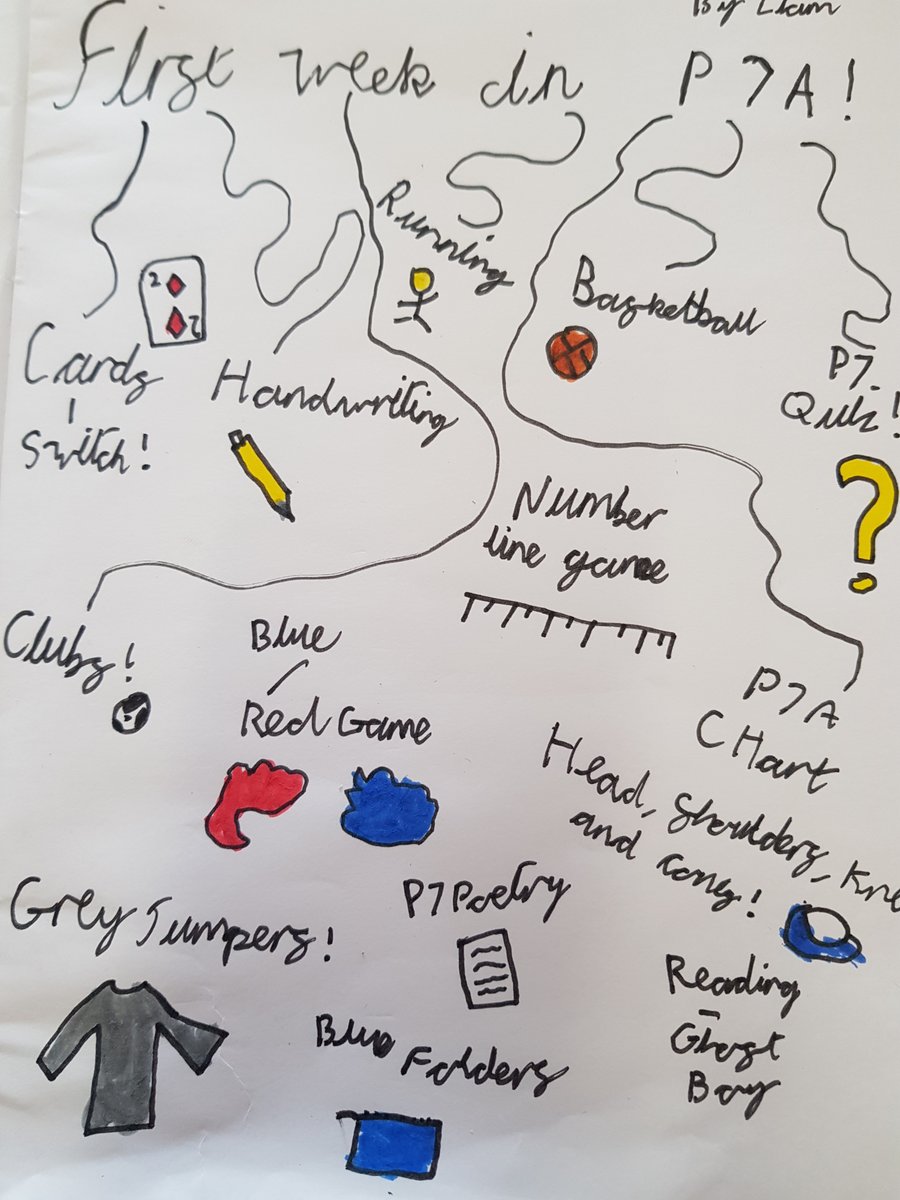 By Liam
First week in P7A!
Running
Basketball
2
2
Cards
-
Switch!
Handwriting
P7
Quiz!
?
Number
line game
Clubs!
Blue
/
Red Game
P7A
CHart
Head, Shoulders, Kne
and cones!
Grey Jumpers!
P7 Poetry
Reading
-
Ghost
Boy
Blue Folders